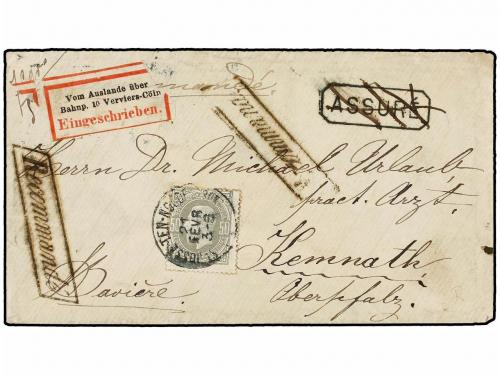 Vom Auslande über
Bahnp. 10 Verviers-Cöln
Eingeschrieben.
ASSURÉ
Recommandé
Recommandé
Herrn Dr. Michael Urlaub
pract. Arzt.
Kemnath
Oberpfalz.
Bavière
FEVR